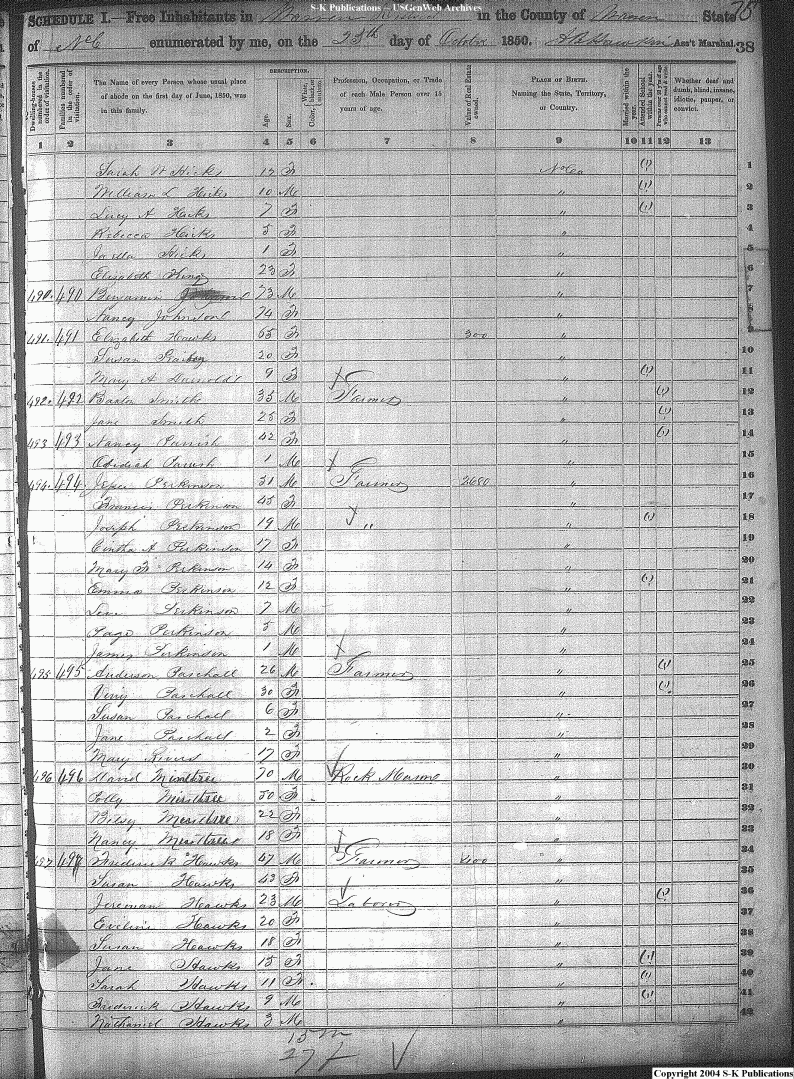 S-K Publications – USGenWeb Archives
75
SCHEDULE I.—Free Inhabitants in in the County of Warren State
of N C enumerated by me, on the 25th day of October 1850. Ass't Marshal. 38
Dwelling-houses numbered in the order of visitation.
Families numbered in the order of visitation.
The Name of every Person whose usual place of abode on the first day of June, 1850, was in this family.
DESCRIPTION.
Age.
Sex.
Color, White, black, or mulatto.
Profession, Occupation, or Trade of each Male Person over 15 years of age.
Value of Real Estate owned.
PLACE OF BIRTH. Naming the State, Territory, or Country.
Married within the year.
Attended School within the year.
Persons over 20 y'rs of age who cannot read & write.
Whether deaf and dumb, blind, insane, idiotic, pauper, or convict.
1 2 3 4 5 6 7 8 9 10 11 12 13
1 Sarah Hicks 12 F (1) 1
2 William L Hicks 10 M " (1) 2
3 Lucy A Hicks 7 F " (1) 3
Rebecca Hicks 5 F " 4
Hicks 1 F " 5
Elizabeth King 23 F " 6
490. 490 Benjamin 73 M " 7
Nancy Johnson 74 F " 8
491. 491 Elizabeth Hawks 65 F 300 " 9
Susan 20 F " 10
Mary A 9 F " (1) 11
492. 492 Smith 35 M Farmer " (1) 12
Jane Smith 25 F " (1) 13
493 493 Nancy Parrish 42 F " (1) 14
Obidiah Parrish 1 M " 15
494. 494 Perkinson 51 M Farmer 2680 " 16
Francis Perkinson 45 F " 17
Joseph Perkinson 19 M " " (1) 18
Cintha A Perkinson 17 F " 19
Mary F Perkinson 14 F " 20
Emma Perkinson 12 F " (1) 21
Perkinson 7 M " 22
Page Perkinson 5 M " 23
James Perkinson 1 M " 24
495 495 Anderson Paschall 26 M Farmer " (1) 25
Paschall 30 F " (1) 26
Susan Paschall 6 F " 27
Jane Paschall 2 F " 28
Mary Rivers 17 F " 29
496 496 David Mesittree 70 M Rock Mason " 30
Polly Mesittree 50 F " 31
Betsy Mesittree 22 F " 32
Nancy Mesittree 18 F " 33
497 497 Frederick Hawks 47 M Farmer 400 " 34
Susan Hawks 43 F " 35
Jereman Hawks 23 M Labour " (1) 36
Eveline Hawks 20 F " 37
Susan Hawks 18 F " 38
Jane Hawks 15 F " (1) 39
Sarah Hawks 11 F " (1) 40
Frederick Hawks 9 M " (1) 41
Nathaniel Hawks 3 M " 42
15 m
27 f
Copyright 2004 S-K Publications